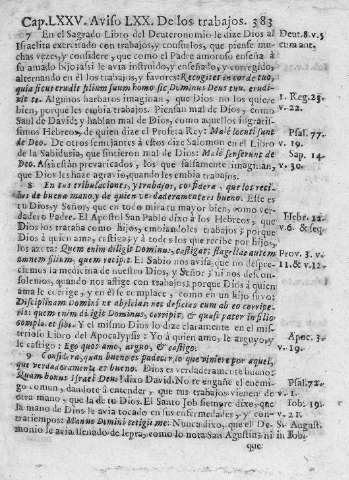 Cap. LXXV. Aviso LXX. De los trabajos. 383
7 En el Sagrado Libro del Deuteronomio le dize Dios al
Deut. 8. v. 5
Israelita exercitado con trabajos, y consuelos, que piense mu-
chas vezes, y considere, que como el Padre amoroso enseña à
su amado hijo, assi le avia instruido, y enseñado, y corregido,
alternando en él los trabajos, y favores: Recogites in corde tuo,
quia sicut erudit filium suum homo sic Dominus Deus tuus erudi-
vit te. Algunos barbaros imaginan, que Dios no los quiere
1. Reg. 25.
bien, porque les embia trabajos. Piensan mal de Dios, como
v. 22.
Saul de David; y hablan mal de Dios, como aquellos ingratis-
simos Hebreos, de quien dize el Profeta Rey: Malè locuti sunt
Psal. 77.
de Deo. De otros semejantes à estos dize Salomon en el Libro
v. 19.
de la Sabiduria, que sintieron mal de Dios: Malè senserunt de
Sap. 14.
Deo. Assi están prevaricados, y los que falsamente imaginan,
v. 30.
que Dios les haze agravio, quando les embia trabajos.
8 En tus tribulaciones, y trabajos, considera, que los reci-
bes de buena mano, y de quien verdaderamente es bueno. Este es
tu Dios, y Señor, que en todo mira tu mayor bien, como ver-
dadero Padre. El Apostol San Pablo dixo à los Hebreos, que
Hebr. 12.
Dios los trataba como hijos, embiandoles trabajos; porque
v. 6. & seq.
Dios à quien ama, castiga; y à todos los que recibe por hijos,
los azota: Quem enim diligit Dominus, castigat: flagellat autem
omnem filium, quem recipit. El Sabio nos avisa, que no despre-
Prov. 3. v.
ciemos la medicina de nuestro Dios, y Señor; ni nos descon-
11. & v. 12.
solemos, quando nos aflige con trabajos; porque Dios à quien
ama le corrige, y en él se complace, como en un hijo suyo:
Disciplinam Domini ne abjicias nec deficias cum ab eo corripe-
ris: quem enim diligit Dominus, corripit, & quasi pater in filio
complacet sibi. Y el mismo Dios lo dize claramente en el mis-
terioso Libro del Apocalypsis: Yo à quien amo, le arguyo, y
Apoc. 3.
le castigo: Ego quos amo, arguo, & castigo.
v. 19.
9 Considera, quan bueno es padecer, lo que viniere por aquel,
que verdaderamente es bueno. Dios es verdaderamente bueno:
Quam bonus Israel Deus! dixo David. No te engañe el enemi-
Psal. 72.
go comun, dandote à entender, que tus trabajos vienen de
v. 1.
otra mano, que la de tu Dios. El Santo Job siempre dixo, que
Iob. 19.
la mano de Dios le avia tocado en sus enfermedades, y con-
v. 21.
tratiempos: Manus Domini tetigit me: Nunca dixo, que el De-
S. August.
monio le avia llenado de lepra, como lo nota San Agustin; ni
in Iob.
que